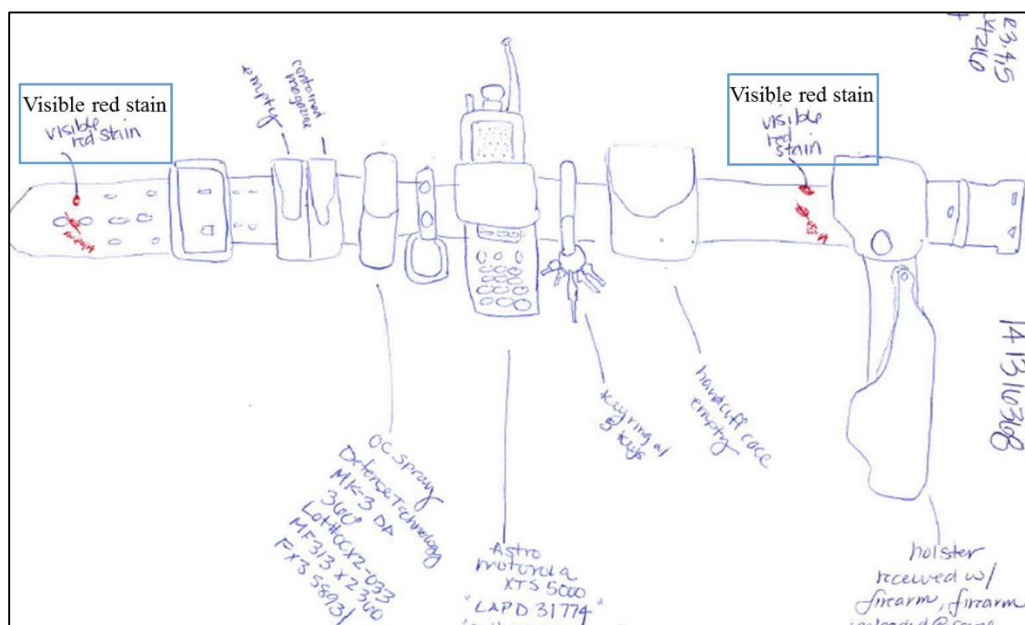 Visible red stain
visible
red stain
empty
contained
magazine
Visible red stain
visible
red
stain
OC Spray
Defense Technology
MK-3 DA
360°
MF313 x2360
Astro
motorola
XTS 5000
"LAPD 31774"
Keyring w/
handcuff case
empty
14B16368
holster
received w/
firearm, firearm